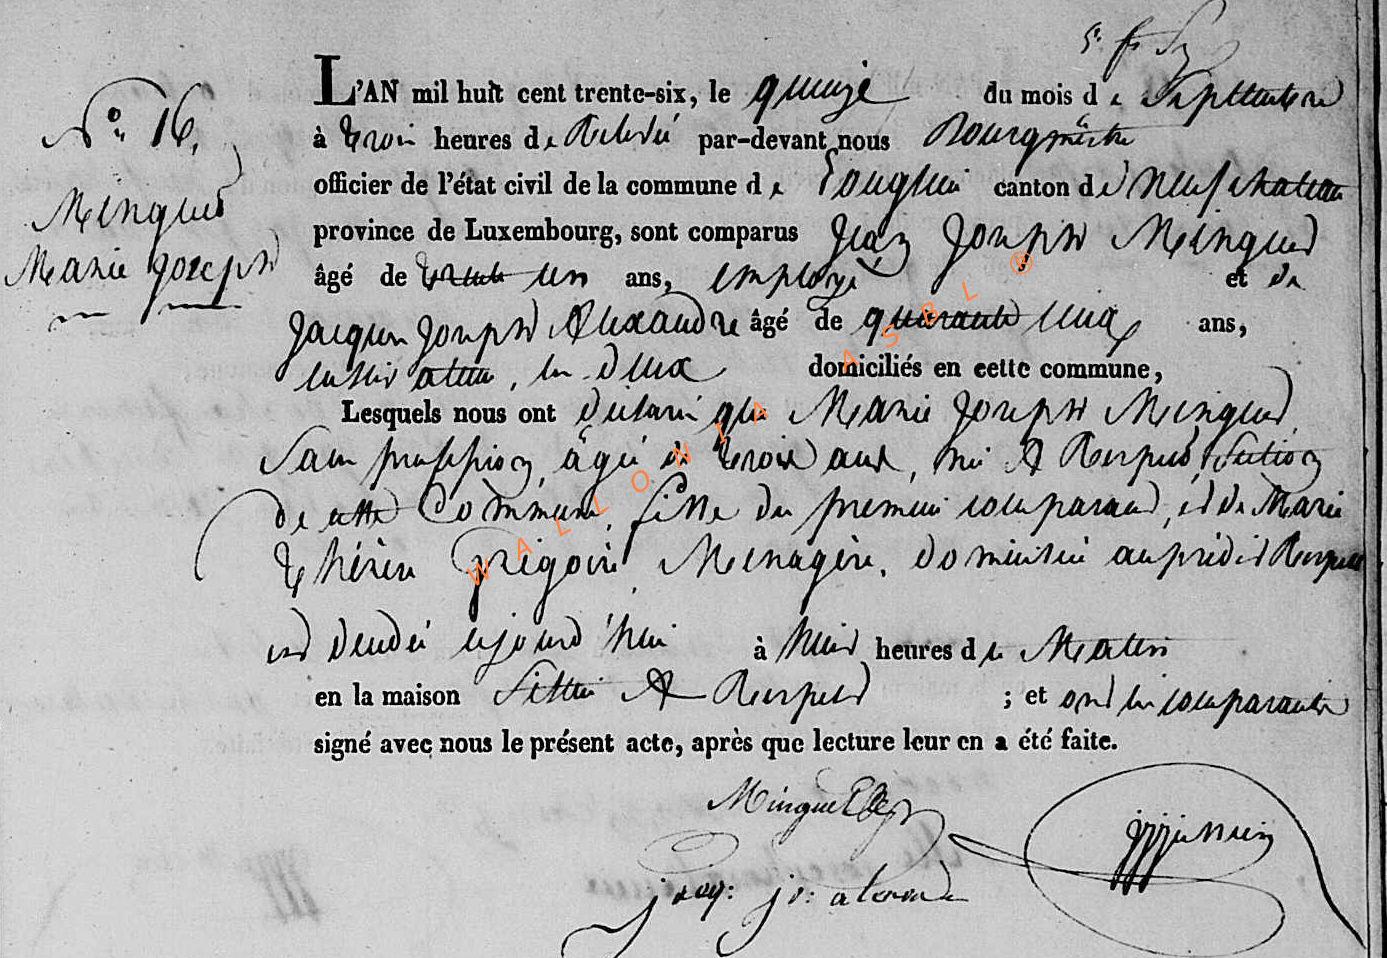 L'AN mil huit cent trente-six, le quinze du mois de Septembre
No 16.
à trois heures de Relevé par-devant nous Bourgmêstre
officier de l'état civil de la commune de Longlier canton de Neufchateau
Minguet
province de Luxembourg, sont comparus Jean Joseph Minguet
Marie Joseph
âgé de trente un ans, employé et de
Jacques Joseph Alexandre âgé de quarante cinq ans,
cultivateur, les deux domiciliés en cette commune,
Lesquels nous ont déclaré que Marie Joseph Minguet
Sans proffession, âgée de trois ans, née A Respelt Section
de cette Commune, fille du premier comparant, et de Marie
thérèse Grégoire Menagère, domiciliée auprédit Respelt
est décédée ajourd'hui à huit heures de Matin
en la maison Sittué A Respelt ; et ont les comparants
signé avec nous le présent acte, après que lecture leur en a été faite.
Minguet
jacq: js: alexandre
WALLONIA ASBL ®